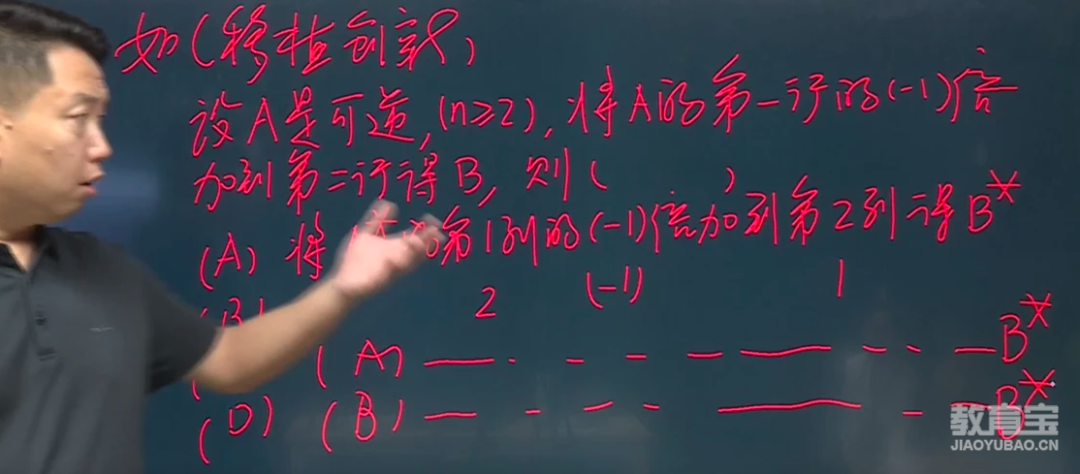 如(移植创新)
设A是可逆,(n≥2),将A的第一行的(-1)倍
加到第二行得B,则( )
(A) 将 的第1列的(-1)倍加到第2列得B*
(B) 2 (-1) 1
(A) B*
(D) (B) B*
教育宝
JIAOYUBAO.CN